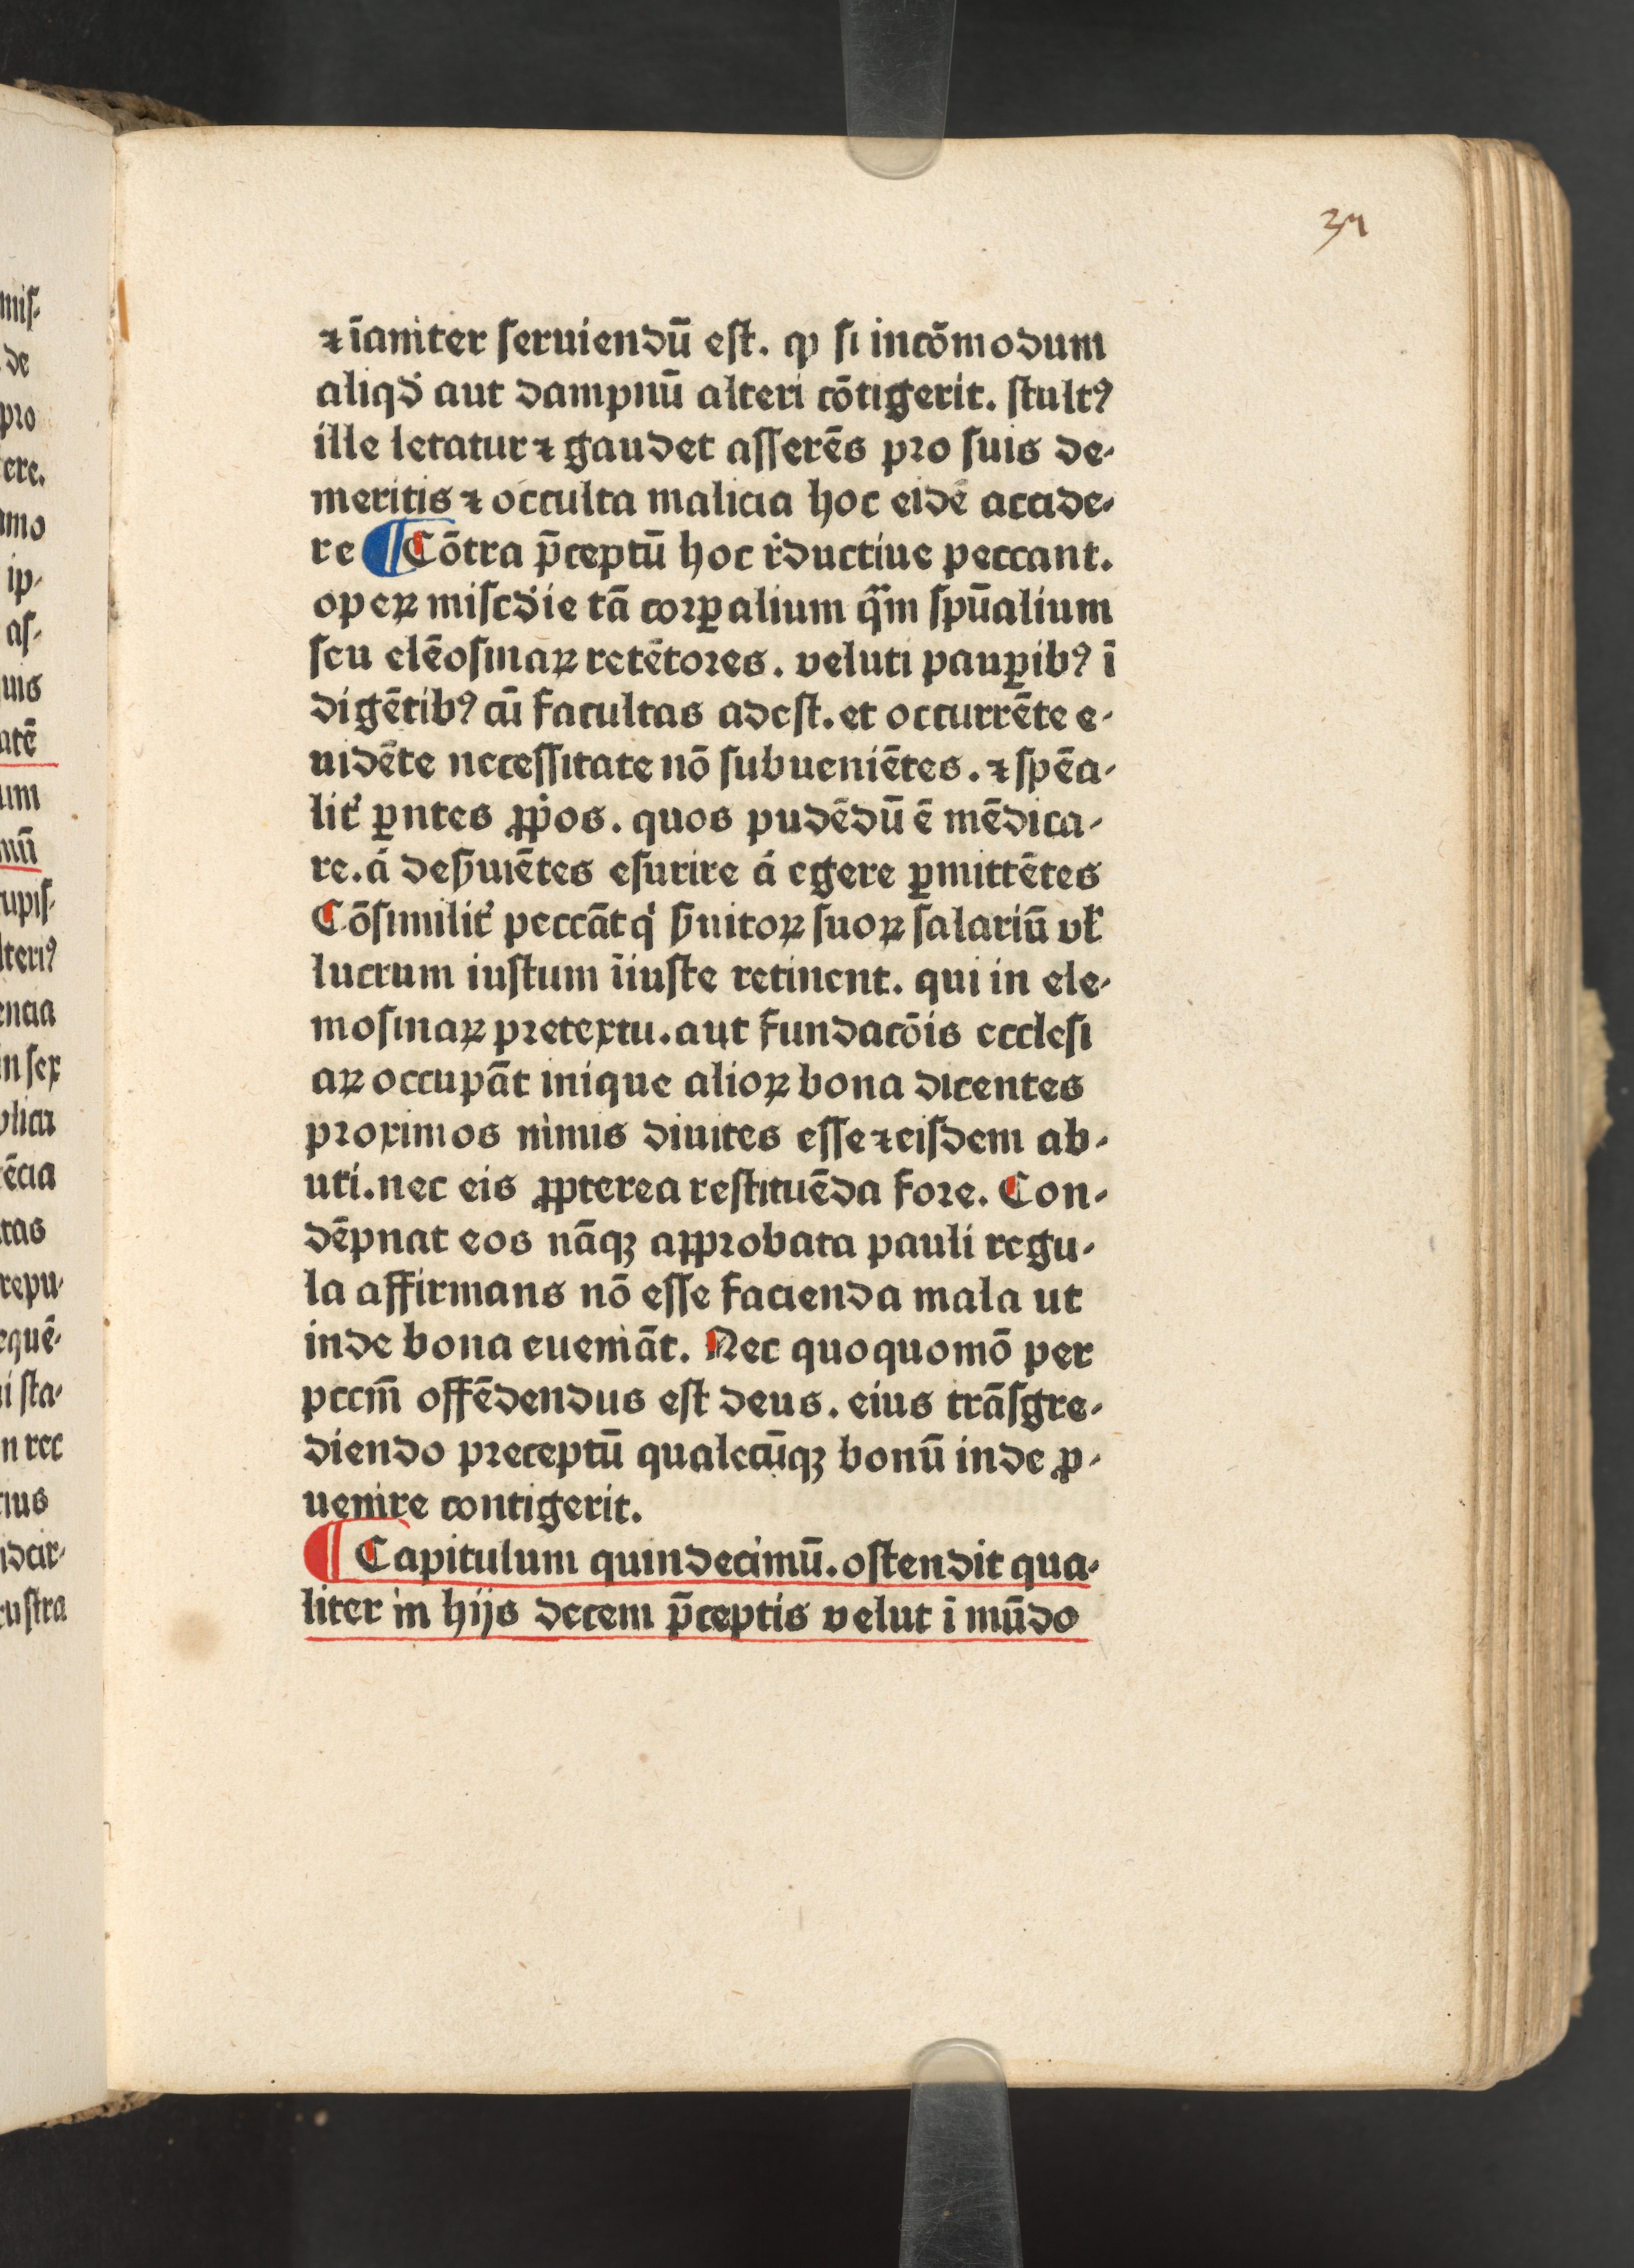 37
⁊ īaniter seruiendū est. ꝙ si incōmodum
aliqd̓ aut dampnū alteri cōtigerit. stultꝰ
ille letatur ⁊ gaudet asserēs pro suis de-
meritis ⁊ occulta malicia hoc eidē accide-
re ¶ Cōtra p̄ceptū hoc r̓ductiue peccant.
operꝝ miscd̓ie tā corꝑalium q̄m spūalium
seu elēosinaꝝ retētores. veluti pauꝑibꝰ ī
digētibꝰ cū facultas adest. et occurrēte e-
uidēte necessitate nō subueniētes. ⁊ spēa-
lit̓ ꝑntes ꝓp̓os. quos pudēdū ē mēdica-
re. á des̄uiētes esurire á egere ꝑmittētes
Cōsimilit̓ peccāt q̓ s̄uitoꝝ suoꝝ salariū vl̓
lucrum iustum īiuste retinent. qui in ele-
mosinaꝝ pretextu. aut fundacōis ecclesi
aꝝ occupāt inique alioꝝ bona dicentes
proximos nimis diuites esse ⁊ eisdem ab-
uti. nec eis ꝓpterea restituēda fore. Con-
dēpnat eos nāqꝫ approbata pauli regu-
la affirmans nō esse facienda mala ut
inde bona eueniāt. Nec quoquomō per
pccm̄ offēdendus est deus. eius trāsgre-
diendo preceptū qualecūqꝫ bonū inde ꝓ-
uenire contigerit.
¶ Capitulum quindecimū. ostendit qua-
liter in hijs decem p̄ceptis velut ī mūdo